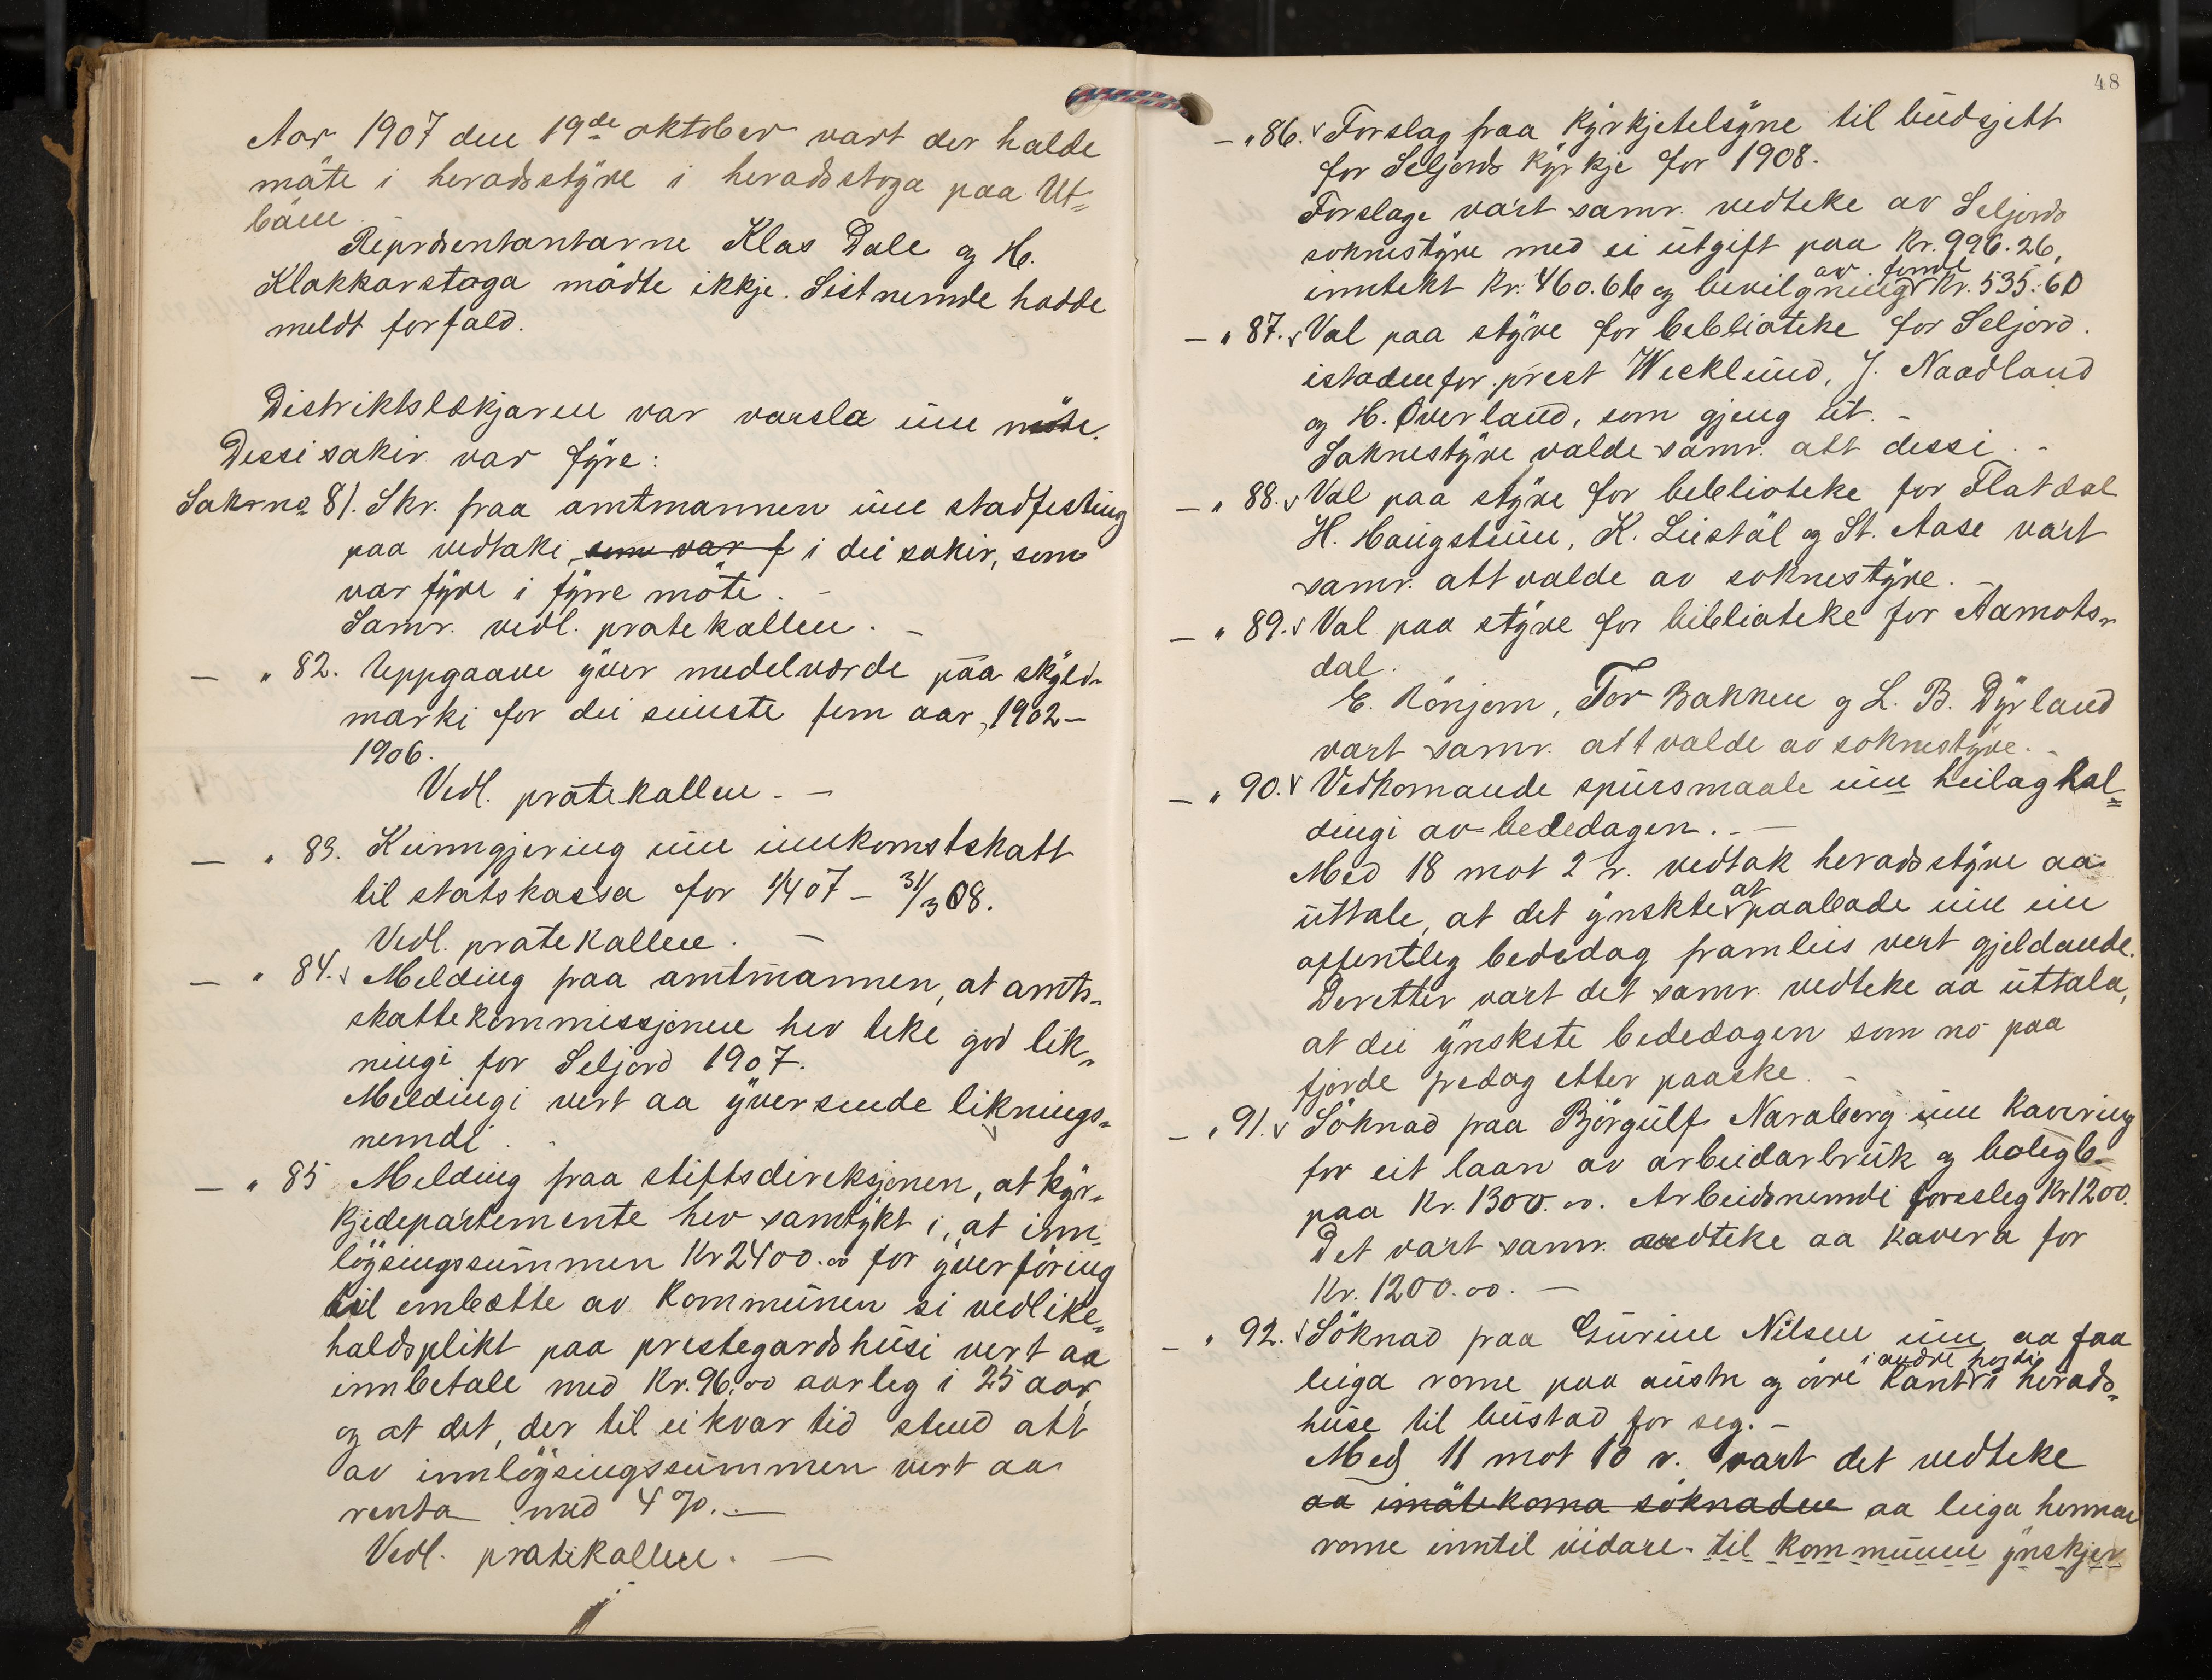 Aar 1907 den 19de oktober vart der halde
möte i heradsstýre i heradsstoga paa Ut=
böen
Repræsentantarne Klas Dale og H.
Klakkarstoga mödte ikkje. Sistnemde hadde
meldt forfald.
Distriktslækjaren var varsla um möte.
Dessi sakir var fýre:
Sak no 81. Skr. fraa amtmannen um stadfesting
paa vedtaki, som var f i dei sakir, som
var fýre i fýrre möte. -
Samr. vedl. protekollen. -
- " 82. Uppgaave ýver medelværde paa skýld-
marki for dei siuste fem aar, 1902-
1906.
Vedl. protekollen. -
- " 83. Kunngjering um innkomstskatt
til statskassa for 1/4 07 - 31/3 08.
Vedl. protekollen. -
- " 84. v Melding fraa amtmannen, at amts-
skattekommissjonen hev teke god lik-
ningi for Seljord 1907.
Meldingi vert aa ýversende liknings-
nemdi.
- " 85 Melding fraa stiftsdireksjonen, at kýr-
kjedepartemente hev samtýkt i, at inn-
löýsingssummen Kr 2400.00 for ýverföring
til embætte av kommunen si vedlike-
haldsplikt paa prestegardshusi vert aa
innbetale med Kr. 96.00 aarleg i 25 aar,
og at det, der til ei kvar tid stend att
av innlöýsingssummen vert aa
renta med 4 %. -
Vedl. protekollen. -
48
- " 86. v Forslag fraa kýrkjetelsýne til budsjett
for Seljords kýrkje for 1908.
Forslage vart samr. vedteke av Seljords
soknestýre med ei utgift paa Kr. 996.26,
av fonde
inntekt Kr. 460.66 og bevilgning Kr. 535.60
- " 87. v Val paa stýre for bebliateke for Seljord.
istadenfor prest Wecklund, J. Naadland
og H. Överland, som gjeng ut. -
Soknestýre valde samr. att dessi. -
- " 88. v Val paa stýre for beblioteke for Flatdal
H. Haugstuen, K. Liustöl og St. Aase vart
samr. att valde av soknestýre. -
- " 89. v Val paa stýre for bibliateke for Aamots-
dal.
E. Rönjom, Tor Bakken og L. B. Dýrland
vart samr. att valde av soknestýre. -
- " 90. v Vedkomande spursmaale um heilaghal=
dingi av bededagen. -
Med 18 mot 2 r. vedtok heradsstýre aa
at
uttale, at det ýnskte paabode um ein
offentleg bededag framleis vert gjeldande.
Deretter vart det samr. vedteke aa uttala,
at dei ýnskste bededagen som no paa
fjorde fredag etter paaske. -
- " 91. v Söknad fraa Björgulf Naraberg um kavering
for eit laan av arbeidarbruk og boligb.
paa Kr. 1300.00. Arbeidsnemdi foresleg Kr 1200.
Det vart samr. vedteke aa kavera for
Kr. 1200.00. -
- " 92. v Söknad fraa Gurine Nilsen um aa faa
i andre högdi
leiga rome paa austre og övre kant i herads-
huse til bustad for seg. -
Med 11 mot 10 r. vart det vedteke
aa imötekoma söknaden aa leiga henna
rome inntil vidare. til kommunen ýnskjer